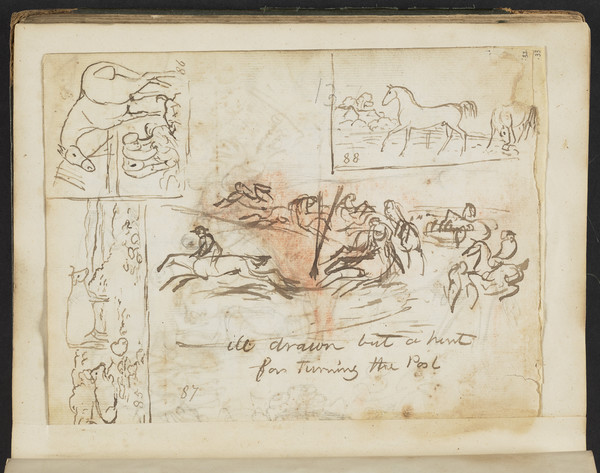 98
88
ill drawn but a hint
for turning the Post
87
85